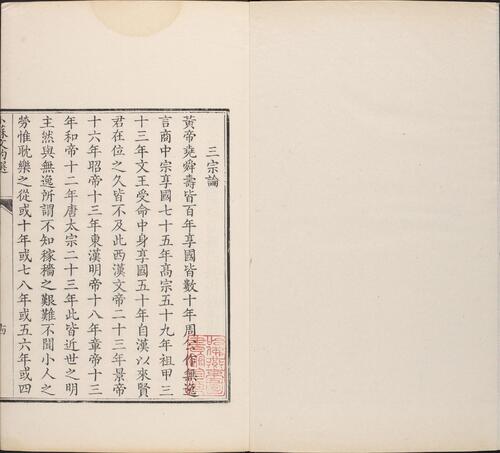 三宗論
黃帝堯舜壽皆百年享國皆數十年周公作無逸
言商中宗享國七十五年高宗五十九年祖甲三
十三年文王受命中身享國五十年自漢以來賢
君在位之久皆不及此西漢文帝二十三年景帝
十六年昭帝十三年東漢明帝十八年章帝十三
年和帝十二年唐太宗二十三年此皆近世之明
主然與無逸所謂不知稼穡之艱難不聞小人之
勞惟耽樂之從或十年或七八年或五六年或四